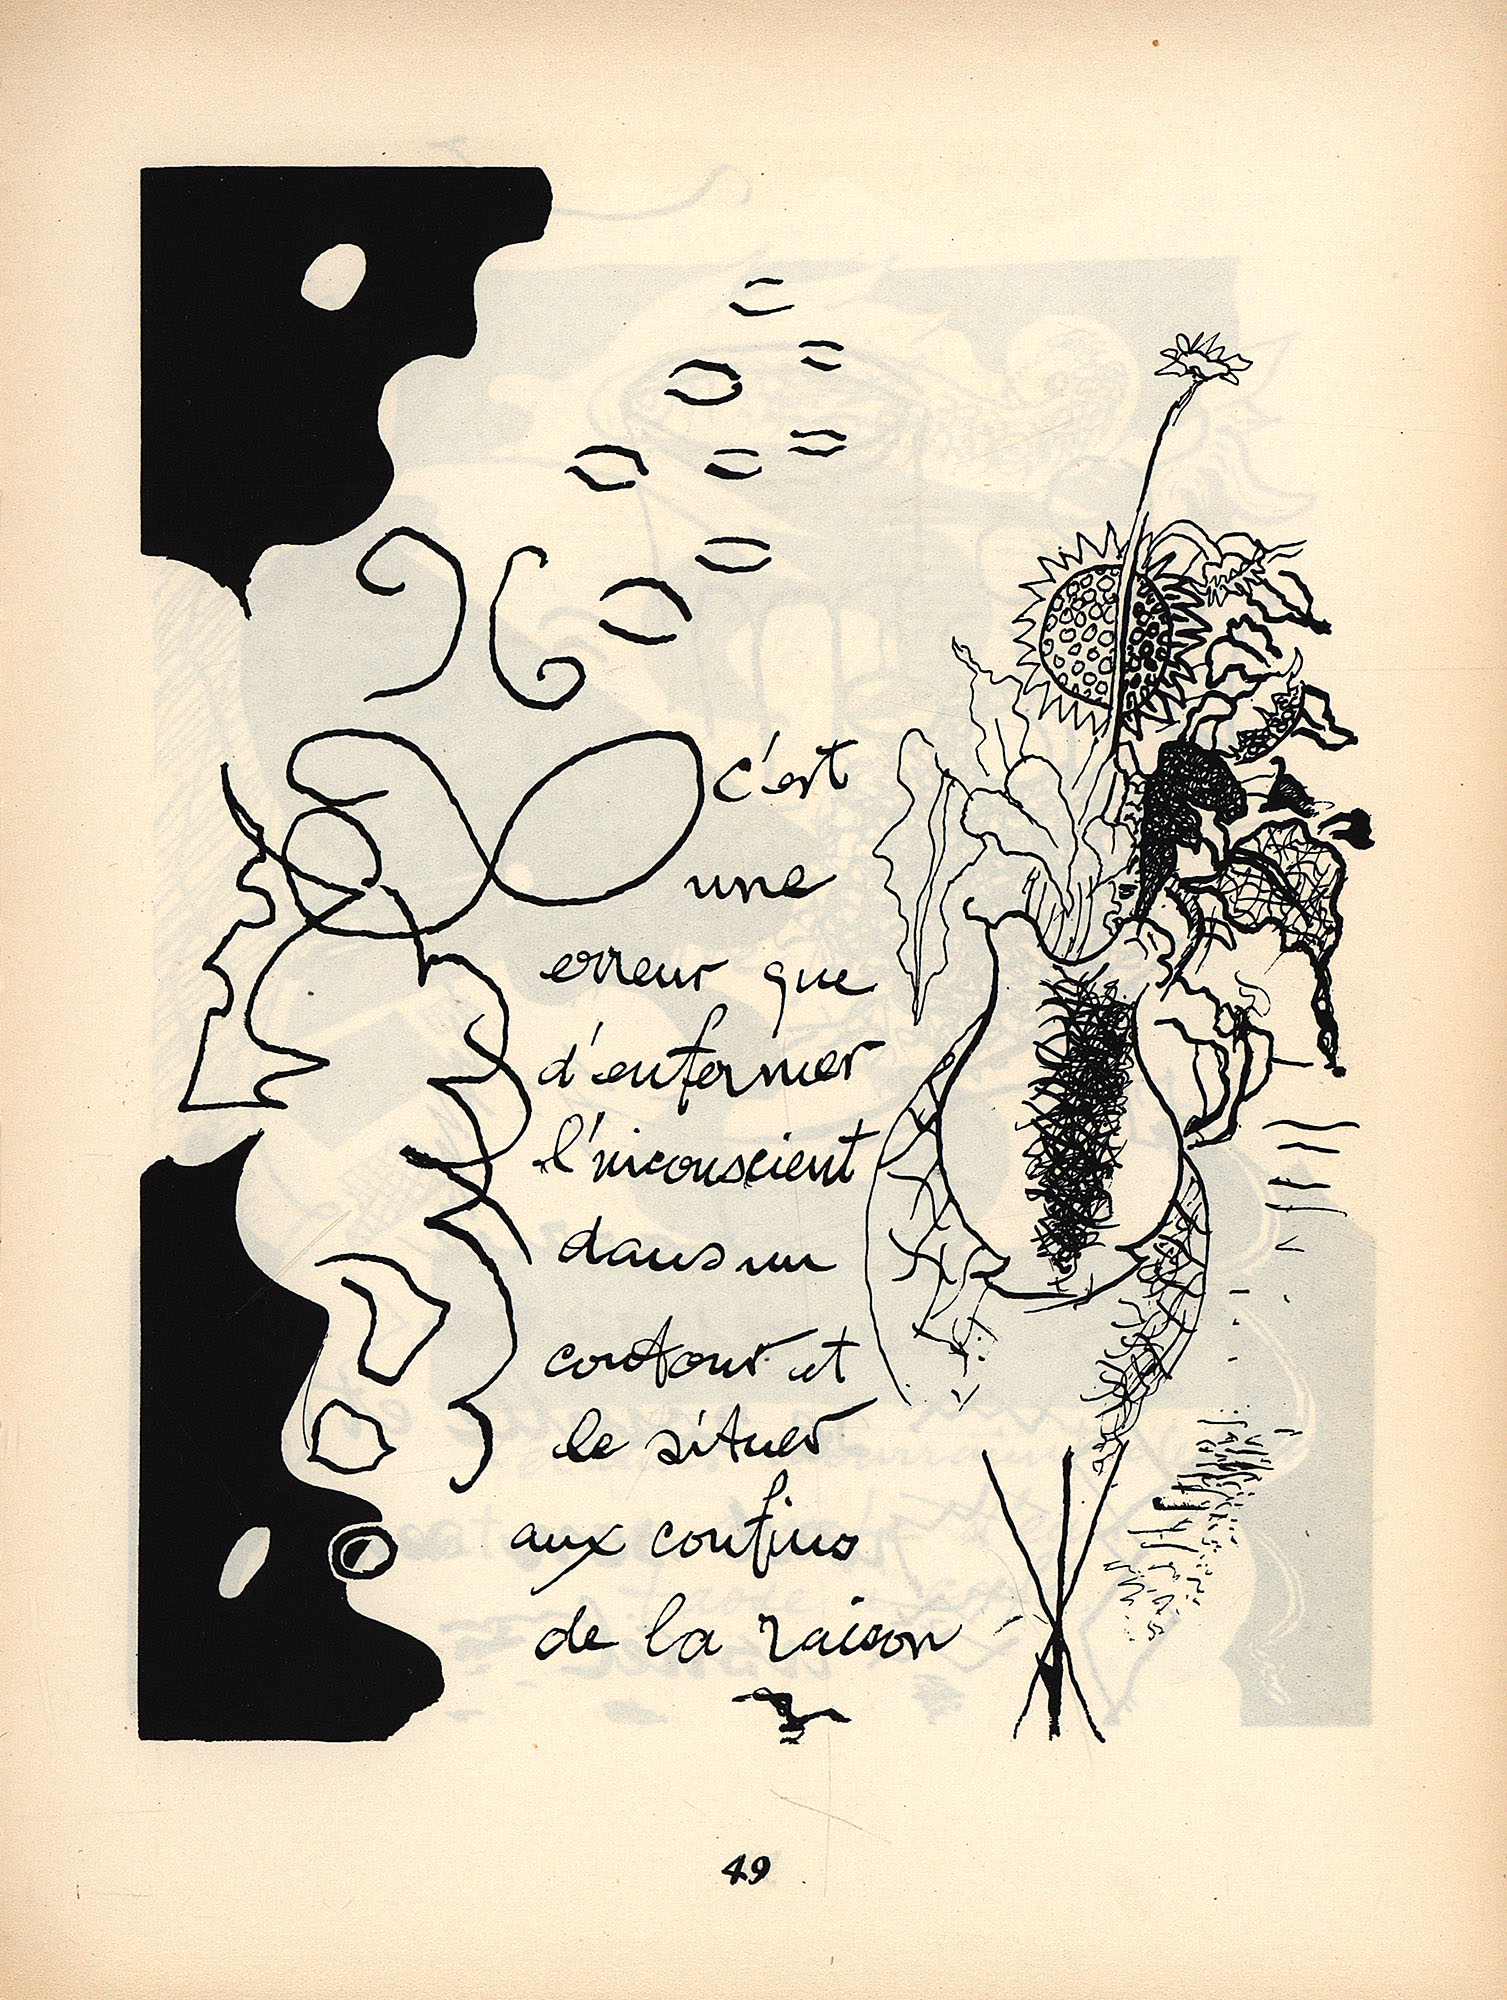 c'est
une
erreur que
d'enfermer
l'inconscient
dans un
contour et
le situer
aux confins
de la raison
49